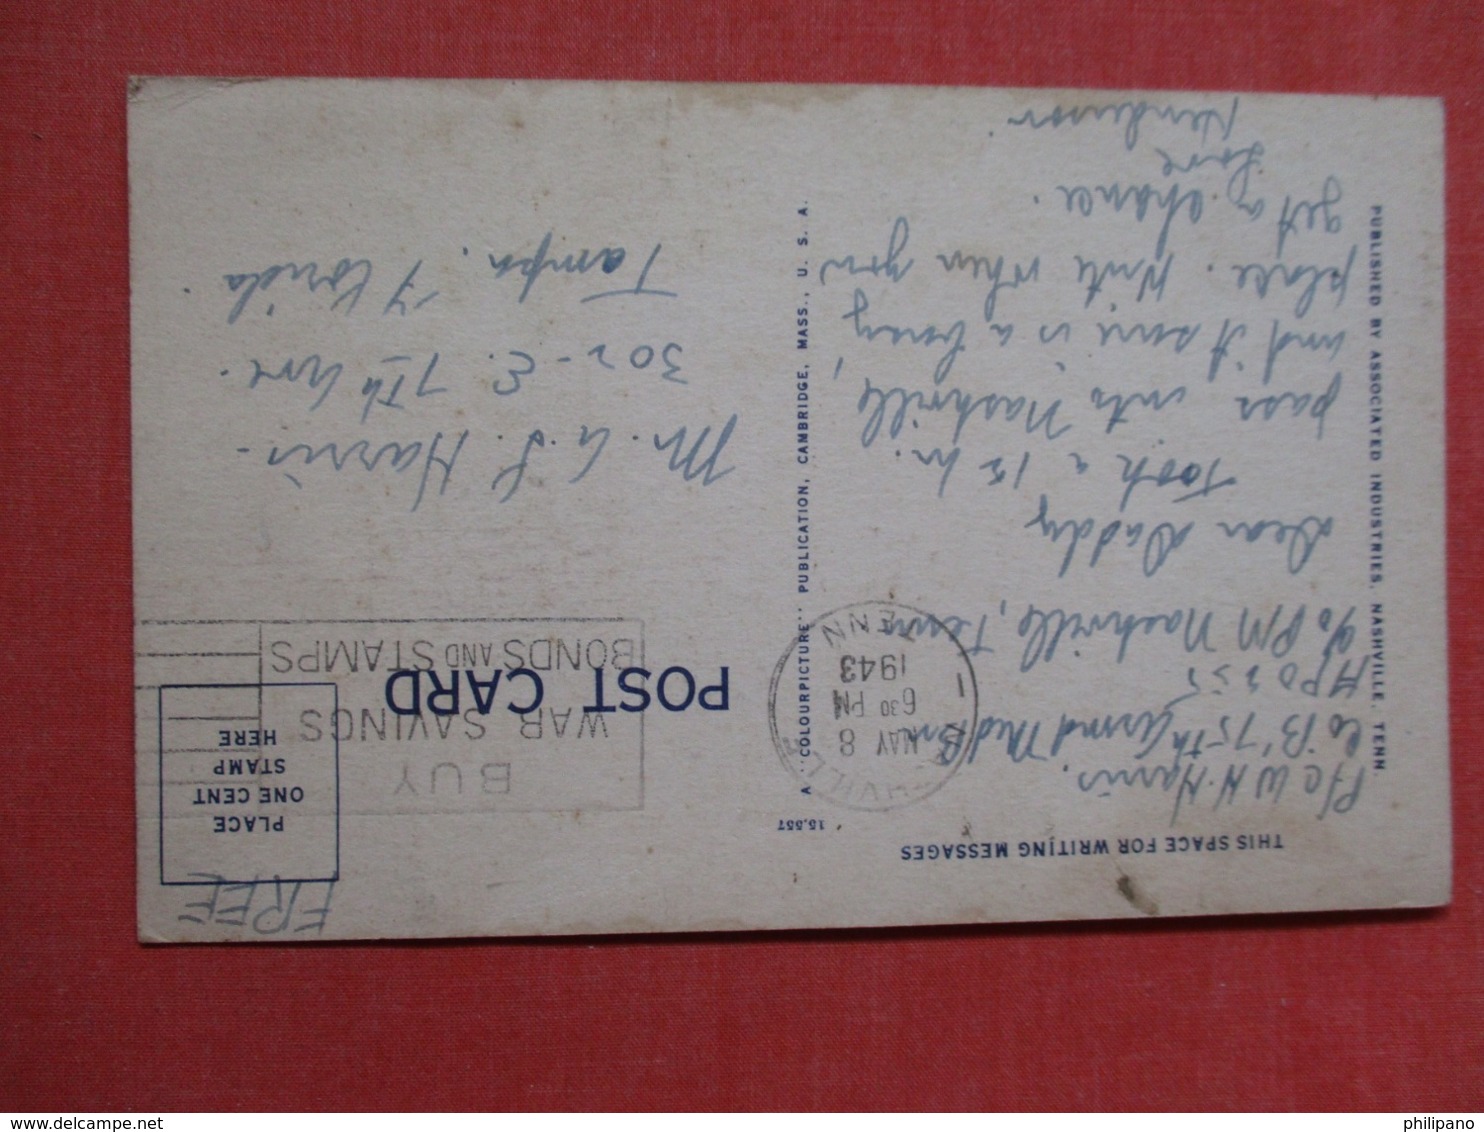 THIS SPACE FOR WRITING MESSAGES
Pfc W H. Harris.
Co B' 75-th Armd Med Bn
APO 255
℅ PM Nashville, Tenn
Dear Daddy
Took a 15 hr.
pass into Nashville,
and it sure is a
place. Write when you
get a chance.
Love
Henderson
PUBLISHED BY ASSOCIATED INDUSTRIES, NASHVILLE, TENN.
15,557
A "COLOURPICTURE" PUBLICATION, CAMBRIDGE, MASS., U. S. A.
MAY 8
6 30 PM
1943
TENN
1
FREE
PLACE
ONE CENT
STAMP
HERE
BUY
WAR SAVINGS
BONDS AND STAMPS
POST CARD
Mr. G. S. Harris-
302-E. 7th Ave.
Tampa. Florida.
philipano